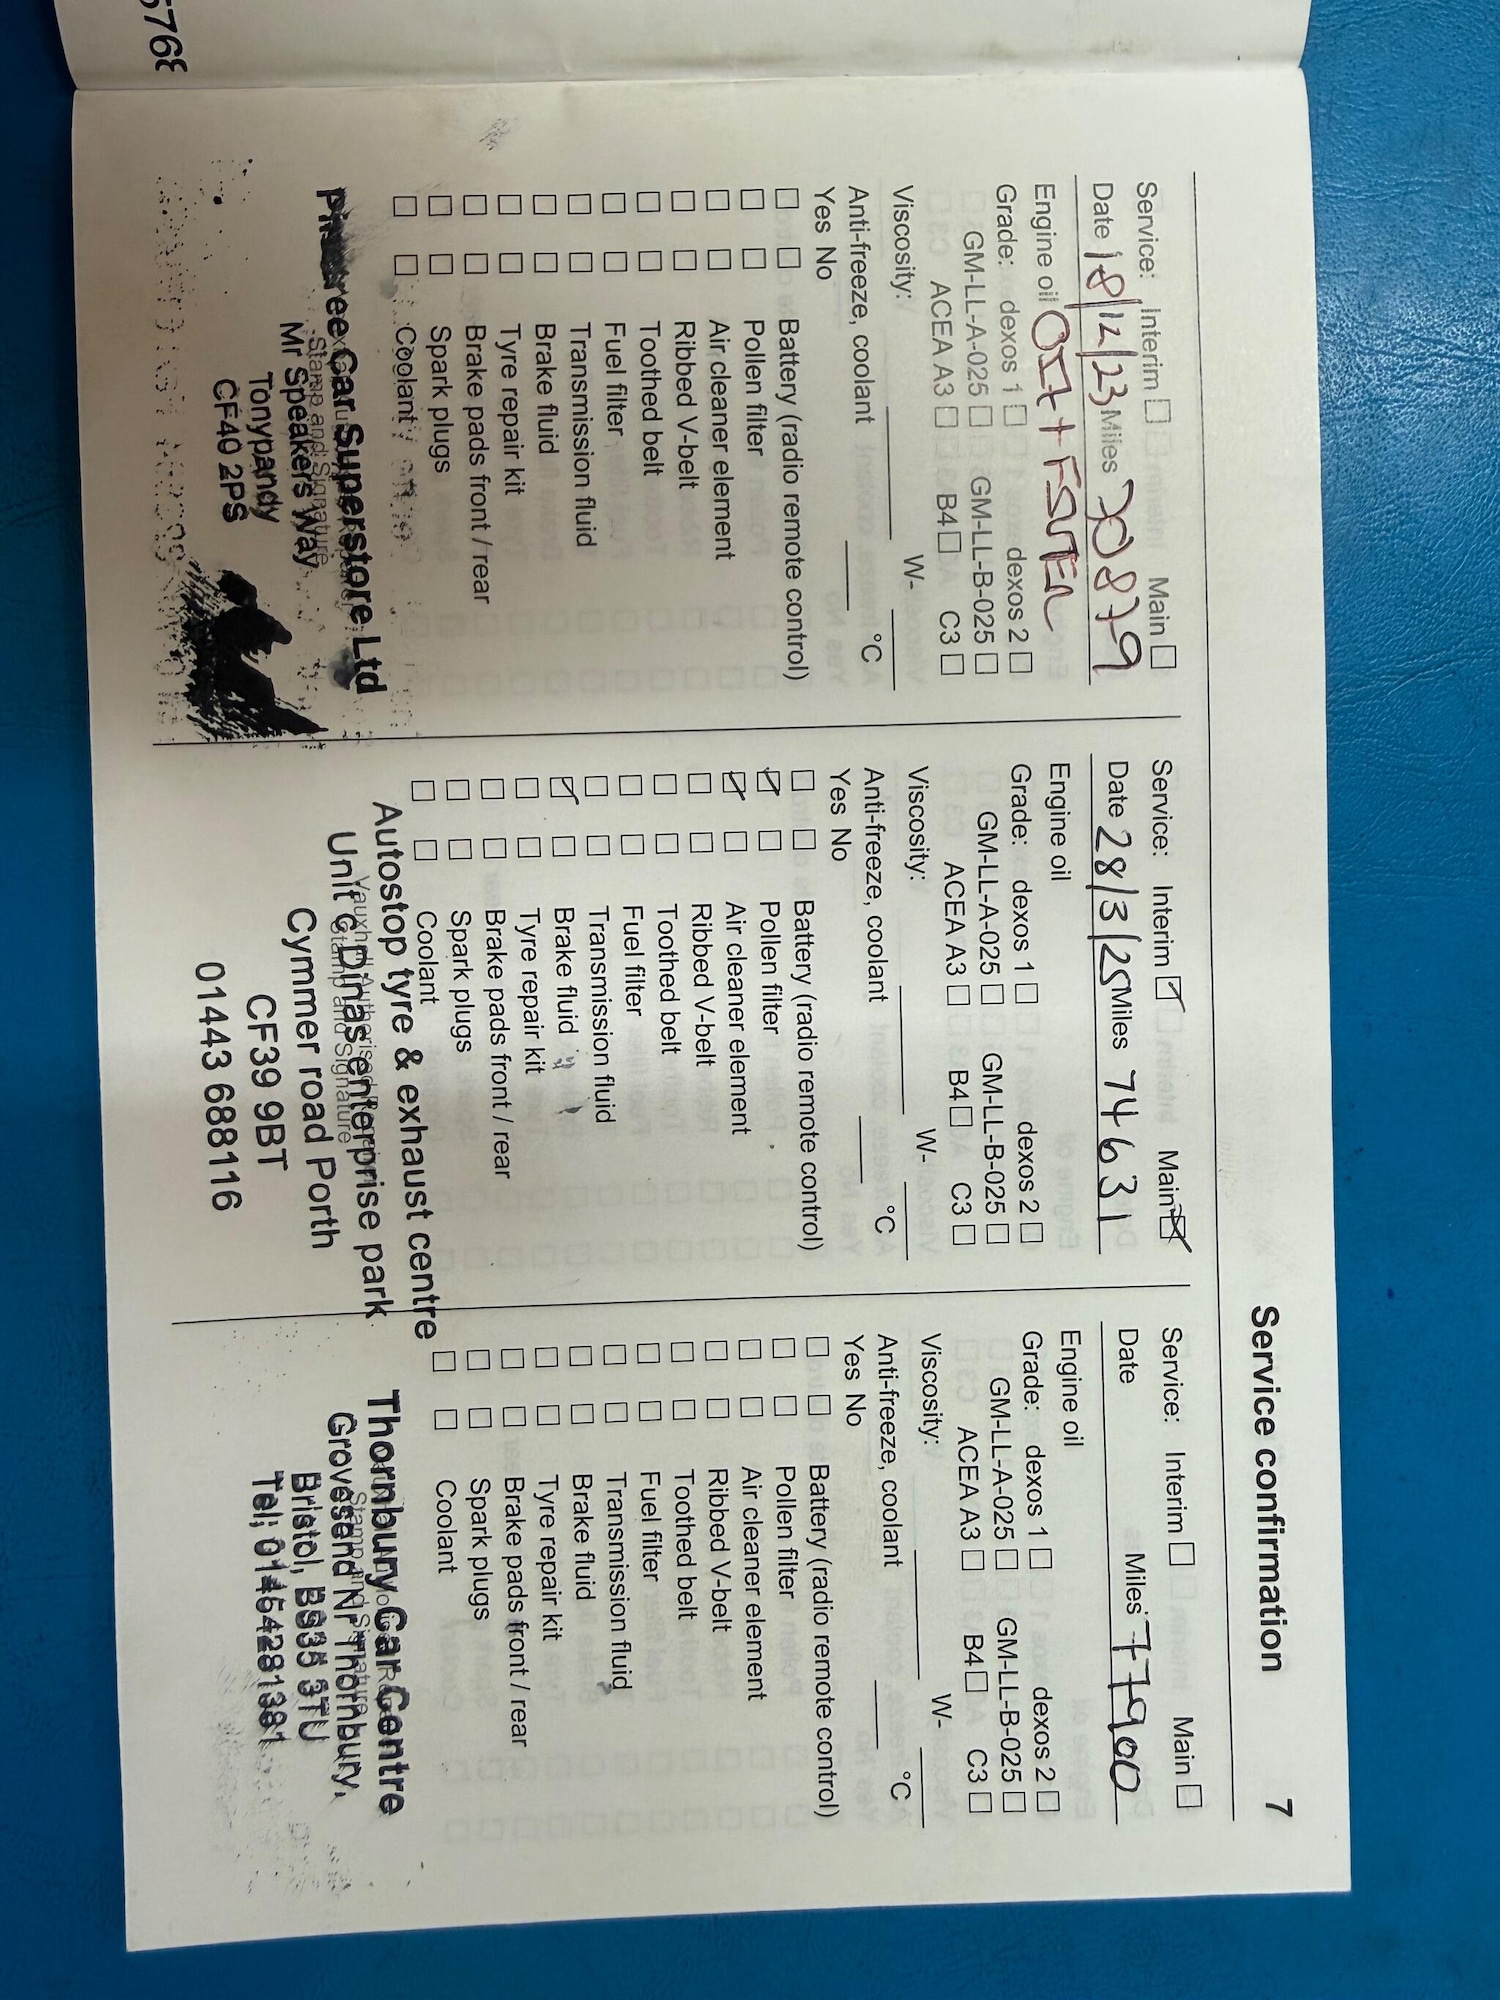 Service confirmation 7
Service: Interim Main
Date 18/12/23 Miles 70879
Engine oil OIL + FILTER
Grade: dexos 1 dexos 2
GM-LL-A-025 GM-LL-B-025
ACEA A3 B4 C3
Viscosity: W-
Anti-freeze, coolant °C
Yes No
Battery (radio remote control)
Pollen filter
Air cleaner element
Ribbed V-belt
Toothed belt
Fuel filter
Transmission fluid
Brake fluid
Tyre repair kit
Brake pads front / rear
Spark plugs
Coolant
Car Superstore Ltd
Stamp and Signature
Mr Speakers Way
Tonypandy
CF40 2PS
Service: Interim Main
Date 28/3/25 Miles 74631
Engine oil
Grade: dexos 1 dexos 2
GM-LL-A-025 GM-LL-B-025
ACEA A3 B4 C3
Viscosity: W-
Anti-freeze, coolant °C
Yes No
Battery (radio remote control)
Pollen filter
Air cleaner element
Ribbed V-belt
Toothed belt
Fuel filter
Transmission fluid
Brake fluid
Tyre repair kit
Brake pads front / rear
Spark plugs
Coolant
Autostop tyre & exhaust centre
Vauxhall Authorised Repairer
Unit c Dinas enterprise park
Stamp and Signature
Cymmer road Porth
CF39 9BT
01443 688116
Service: Interim Main
Date Miles 77900
Engine oil
Grade: dexos 1 dexos 2
GM-LL-A-025 GM-LL-B-025
ACEA A3 B4 C3
Viscosity: W-
Anti-freeze, coolant °C
Yes No
Battery (radio remote control)
Pollen filter
Air cleaner element
Ribbed V-belt
Toothed belt
Fuel filter
Transmission fluid
Brake fluid
Tyre repair kit
Brake pads front / rear
Spark plugs
Coolant
Thornbury Car Centre
Stamp and Signature
Grovesend Nr Thornbury,
Bristol, BS35 3TU
Tel; 01454281381